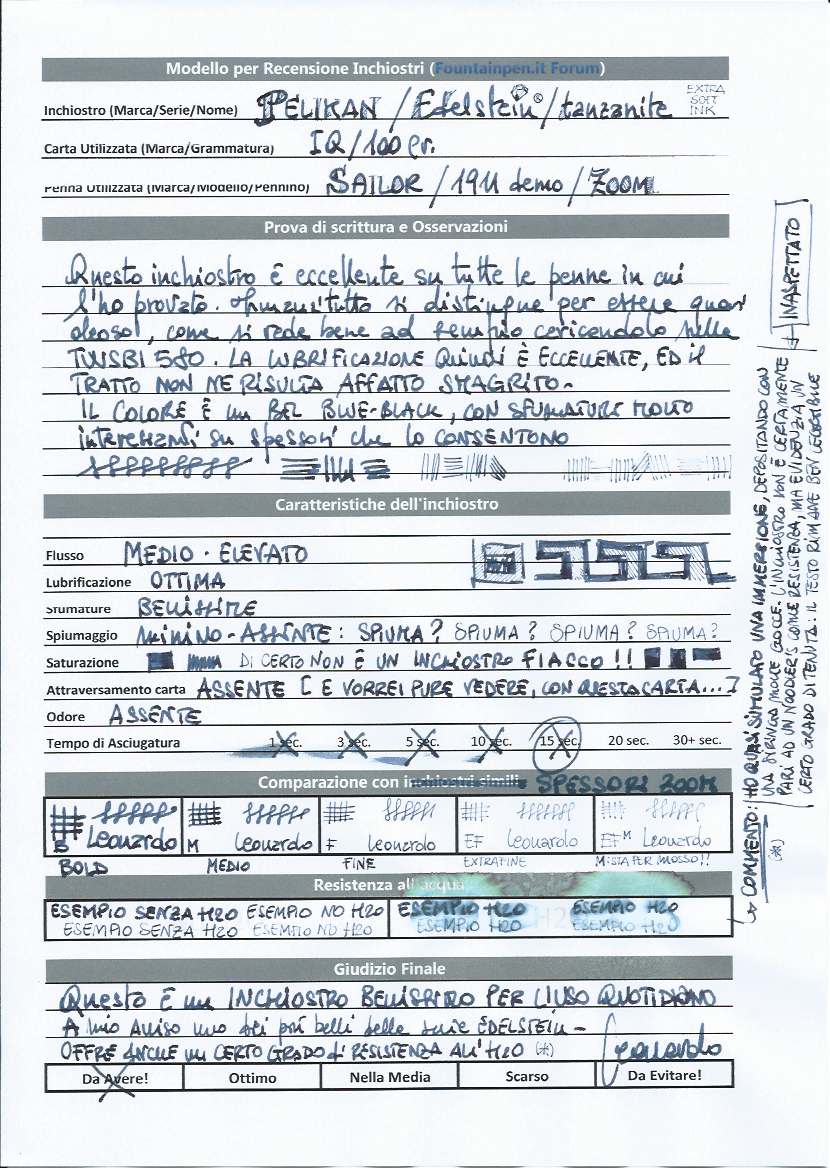 Modello per Recensione Inchiostri (Fountainpen.it Forum)
Inchiostro (Marca/Serie/Nome) PELIKAN / Edelstein® / tanzanite EXTRA SOFT INK
Carta Utilizzata (Marca/Grammatura) IQ/100 gr.
Penna Utilizzata (Marca/Modello/Pennino) SAILOR / 1911 demo / ZOOM
Prova di scrittura e Osservazioni
Questo inchiostro è eccellente su tutte le penne in cui
l'ho provato. Innanzitutto si distingue per essere quasi
oleoso, come si vede bene ad esempio caricandolo nella
TWSBI 580. LA LUBRIFICAZIONE Quindi È ECCELLENTE, ED il
TRATTO NON NE RISULTA AFFATTO SMAGRITO-
IL COLORE È un BEL BLUE-BLACK, CON SFUMATURE MOLTO
interessanti su spessori che lo CONSENTONO
Caratteristiche dell'inchiostro
Flusso MEDIO - ELEVATO
Lubrificazione OTTIMA
Sfumature BELLISSIME
Spiumaggio MINIMO-ASSENTE: SPIUMA? SPIUMA? SPIUMA? SPIUMA?
Saturazione DI CERTO NON È UN INCHIOSTRO FIACCO!!
Attraversamento carta ASSENTE [E VORREI PURE VEDERE, CON QUESTA CARTA...]
Odore ASSENTE
Tempo di Asciugatura 1 sec. 3 sec. 5 sec. 10 sec. 15 sec. 20 sec. 30+ sec.
Comparazione con inchiostri simili SPESSORI ZOOM
B Leonardo M Leonardo F Leonardo EF Leonardo EF M Leonardo
BOLD MEDIO FINE EXTRAFINE MISTA PER MOSSO!!
Resistenza all'acqua
ESEMPIO SENZA H2O ESEMPIO NO H2O ESEMPIO H2O ESEMPIO H2O
ESEMPIO SENZA H2O ESEMPIO NO H2O ESEMPIO H2O ESEMPIO H2O
Giudizio Finale
Questo È un INCHIOSTRO BELLISSIMO PER L'USO QUOTIDIANO
A mio AVVISO uno dei più belli della serie EDELSTEIN-
OFFRE ANCHE un CERTO GRADO di RESISTENZA ALL'H2O (*) Leonardo
Da Avere! Ottimo Nella Media Scarso Da Evitare!
COMMENTO: HO QUASI SIMULATO UNA IMMERSIONE, DEPOSITANDO CON
(*) UNA SIRINGA MOLTE GOCCE. L'INCHIOSTRO NON È CERTAMENTE
PARI AD UN NOODLER'S COME RESISTENZA, MA EVIDENZIA UN
CERTO GRADO DI TENUTA: IL TESTO RIMANE BEN LEGGIBILE
INASPETTATO